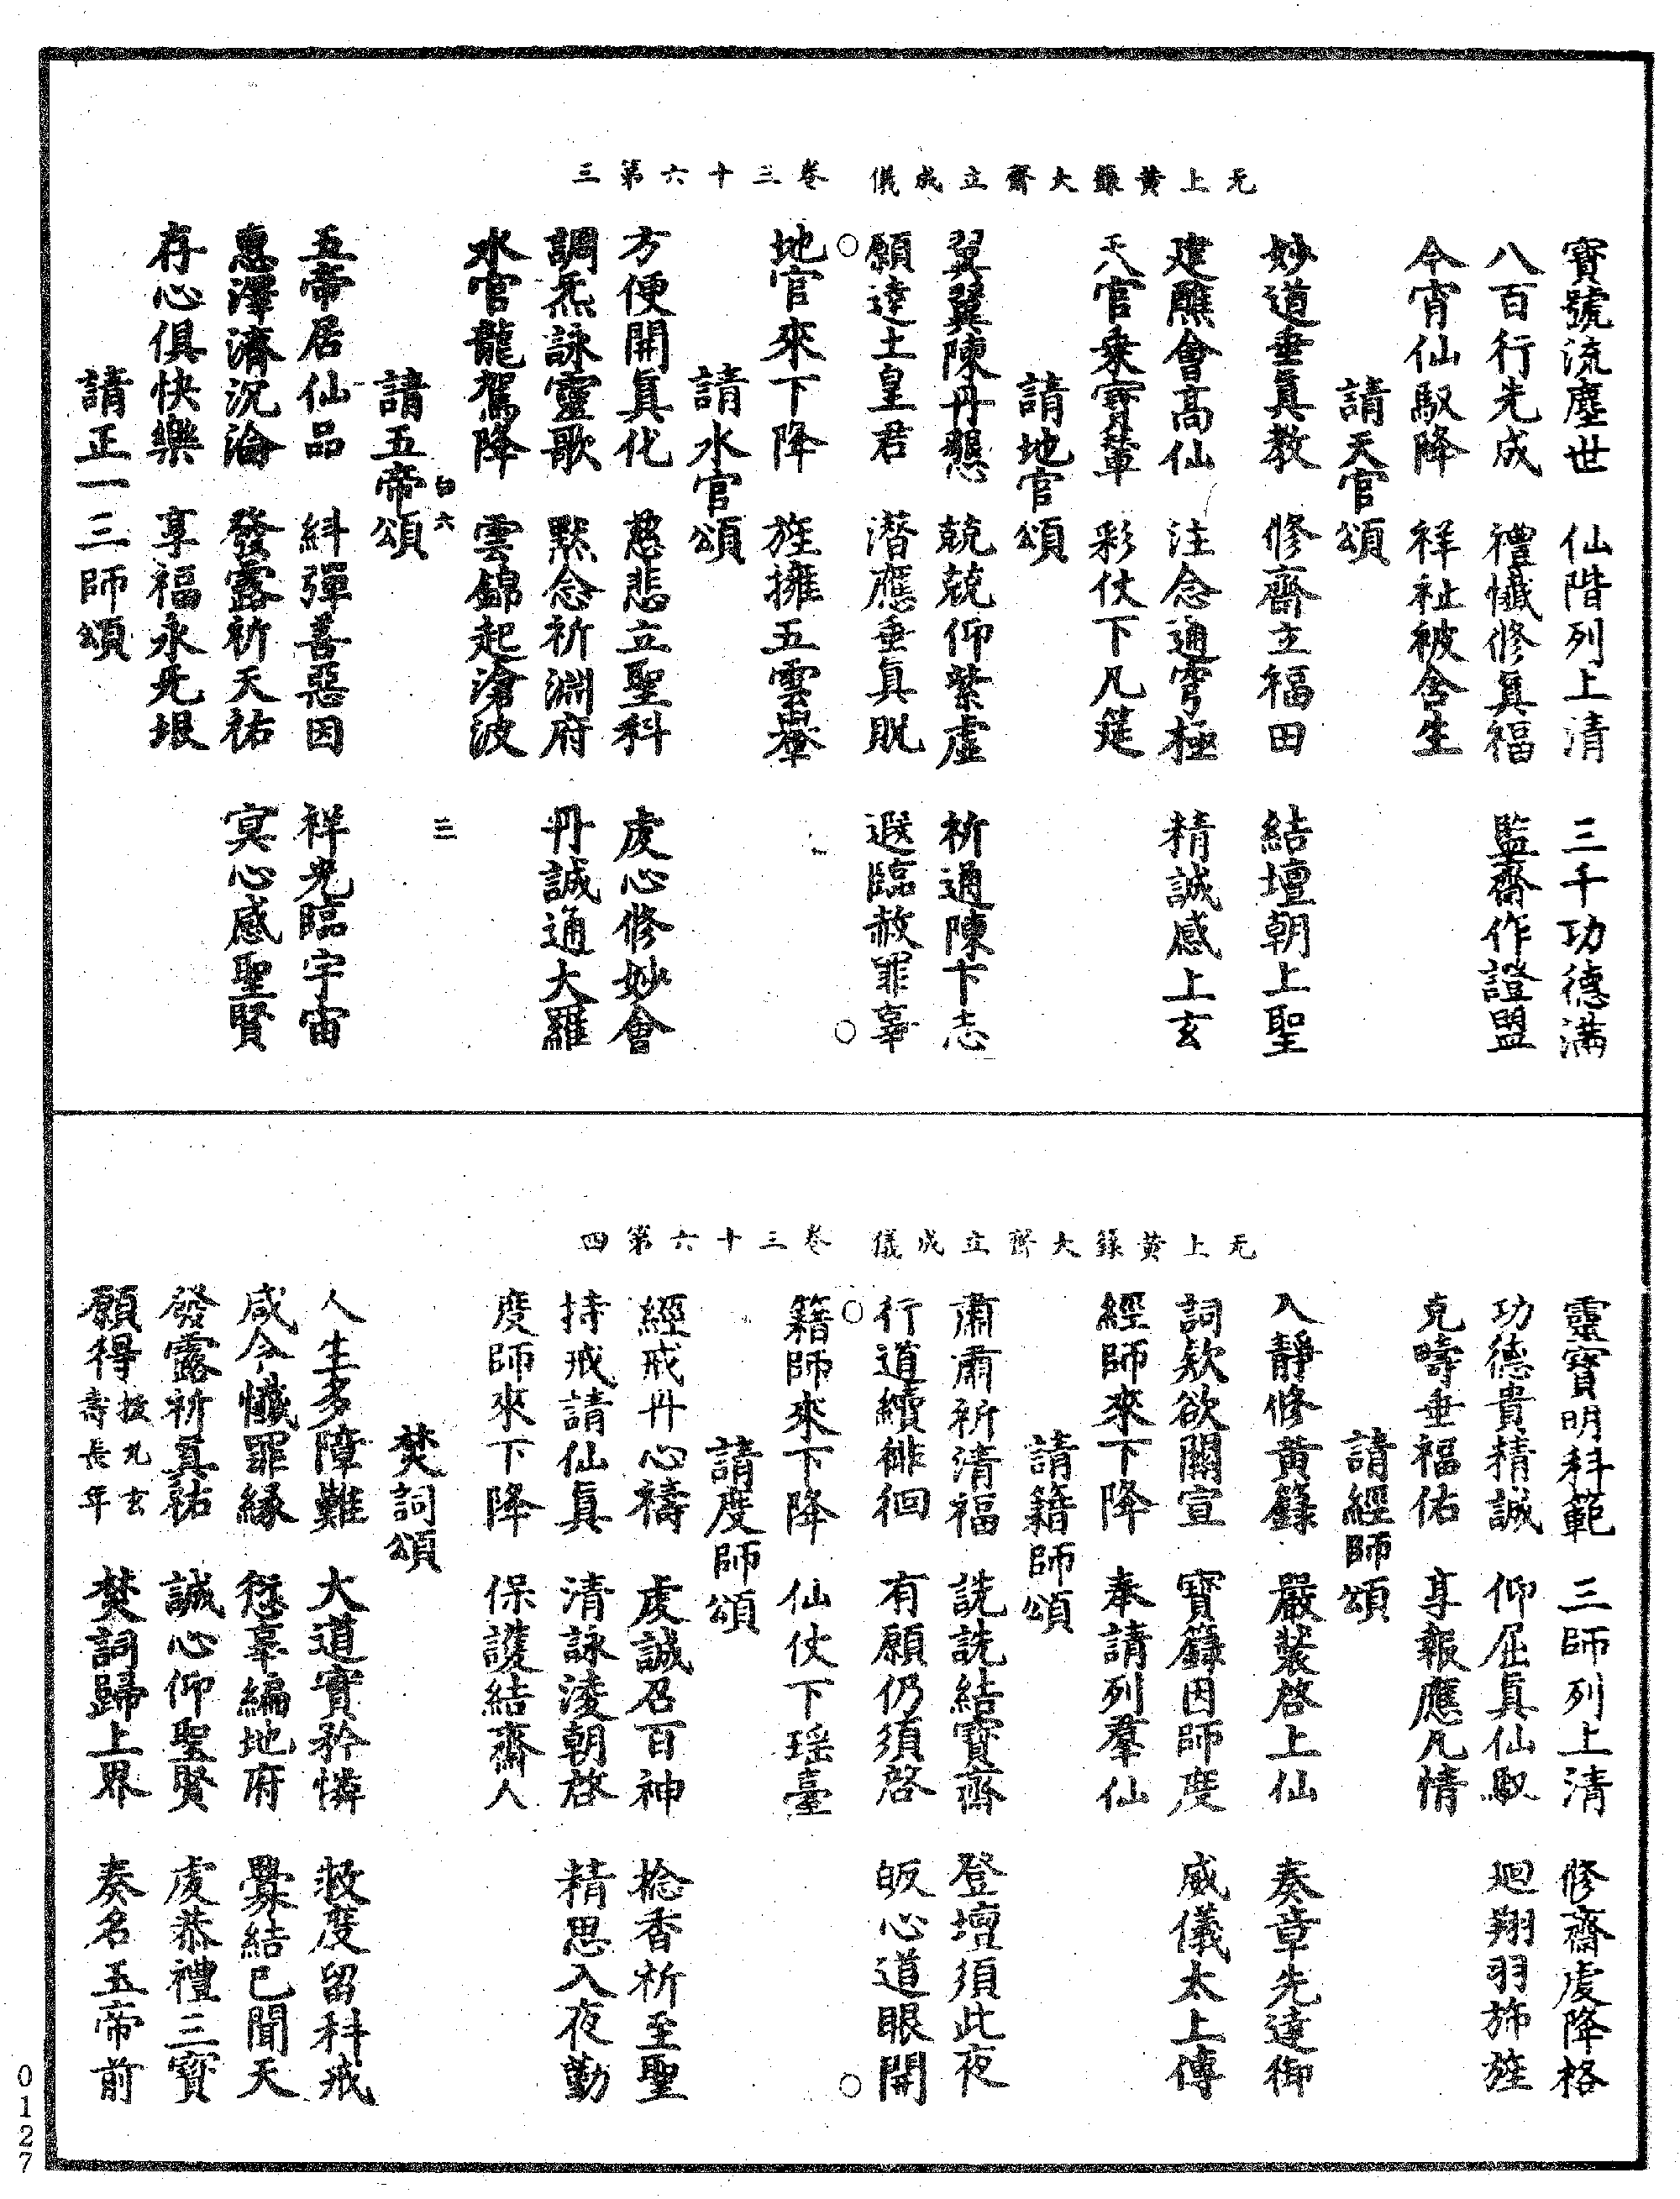 无上黃籙大齋立成儀　卷三十六第三
寶號流塵世　仙階列上清　三千功德滿
八百行先成　禮懺修真福　監齋作證盟
今宵仙馭降　祥祉被含生
請天官頌
妙道垂真教　修齋立福田　結壇朝上聖
建醮會高仙　注念通穹極　精誠感上玄
天官乗寶輦　彩仗下凡筵
請地官頌
翼翼陳丹懇　兢兢仰紫虛　祈通陳下志
願達土皇君　潜應垂真貺　遐臨赦罪辜
地官來下降　旌擁五雲轝
請水官頌
方便開真化　慈悲立聖科　虔心修妙會
調炁詠靈歌　默念祈淵府　丹誠通大羅
水官龍駕降　雲錦起滄波
請五帝頌
五帝居仙品　糾彈善惡因　祥光臨宇宙
惠澤濟沉淪　發露祈天祐　冥心感聖賢
存心俱快樂　享福永无垠
請正一三師頌
无上黃籙大齋立成儀　卷三十六第四
靈寶明科範　三師列上清　修齋虔降格
功德貴精誠　仰屈真仙馭　廻翔羽斾旌
克疇垂福佑　享報應凡情
請經師頌
入靜修黃籙　嚴裝啓上仙　奏章先達御
詞欵欲關宣　寶籙因師度　威儀太上傳
經師來下降　奉請列羣仙
請籍師頌
肅肅祈清福　詵詵結寶齋　登壇須此夜
行道續徘徊　有願仍須啓　皈心道眼開
籍師來下降　仙仗下瑶臺
請度師頌
經戒丹心禱　虔誠召百神　捻香祈至聖
持戒請仙真　清詠淩朝啓　精思入夜勤
度師來下降　保護結齋人
焚詞頌
人生多障難　大道實矜憐　救度留科戒
咸令懺罪緣　愆辜編地府　釁結已聞天
發露祈真祐　誠心仰聖賢　虔恭禮三寶
願得拔九玄壽長年　焚詞歸上界　奏名五帝前
0127